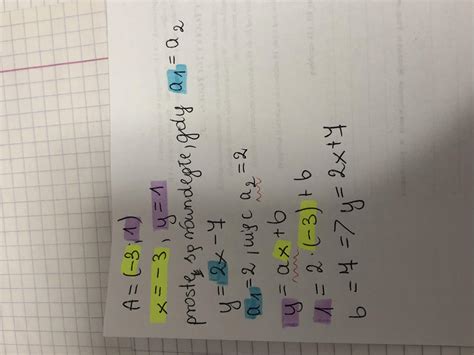 A = (-3; 1)
x = -3, y = 1
proste są równoległe, gdy a₁ = a₂
y = 2x - 7
a₁ = 2, więc a₂ = 2
y = ax + b
1 = 2 · (-3) + b
b = 7 => y = 2x + 7